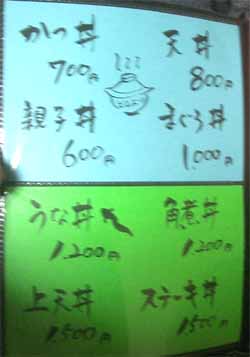 かつ丼 天丼
700円 800円
親子丼 まぐろ丼
600円 1,000円
うな丼 角煮丼
1,200円 1,200円
上天丼 ステーキ丼
1,500円 1,500円